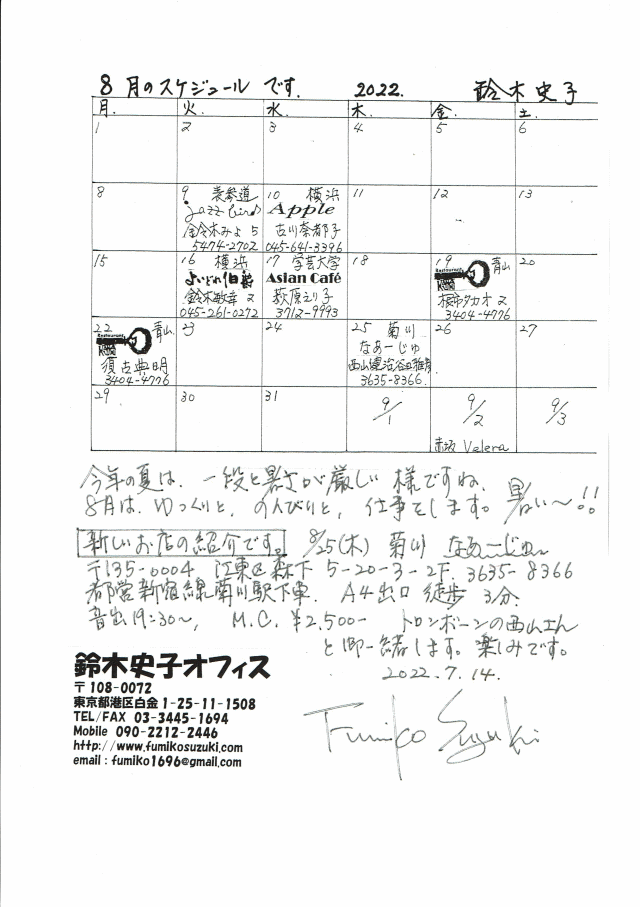 8月のスケジュールです. 2022. 鈴木史子
月. 火. 水. 木. 金. 土.
1 2 3 4 5 6
8
9 表参道
Jazz Bird
鈴木みよ 5
5474-2702
10 横浜
Apple
古川奈都子
045-641-3396
11 12 13
15
16 横浜
よいどれ伯爵
鈴木敏幸 又
045-261-0272
17 学芸大学
Asian Café
萩原えり子
3712-9993
18
19 青山
Restaurant
根市タカオ 又
3404-4776
20
22 青山
Restaurant
須古典明
3404-4776
23 24
25 菊川
なあーじゅ
西山健治
3635-8366.
26 27
29 30 31 9/1 9/2 9/3
赤坂 Velera
今年の夏は、一段と暑さが厳しい様ですね.
8月は、ゆっくりと, のんびりと, 仕事をします。暑い〜!!
新しいお店の紹介です。 8/25(木) 菊川 なあーじゅ
〒135-0004 江東区森下 5-20-3-2F. 3635-8366
都営新宿線菊川駅下車. A4出口 徒歩 3分.
音出19:30〜, M.C. ¥2,500- トロンボーンの西山さん
と御一緒します。楽しみです。
2022.7.14.
鈴木史子オフィス
〒108-0072
東京都港区白金 1-25-11-1508
TEL/FAX 03-3445-1694
Mobile 090-2212-2446
http://www.fumikosuzuki.com
email : fumiko1696@gmail.com
Fumiko Suzuki